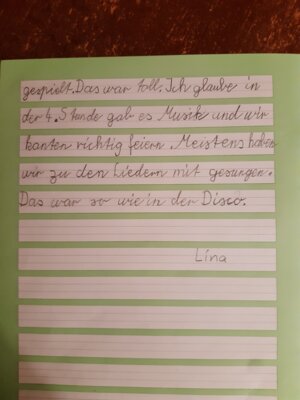 gespielt. Das war toll. Ich glaube in
der 4. Stunde gab es Musik und wir
konten richtig feiern. Meistens haben
wir zu den Liedern mit gesungen.
Das war so wie in der Disco.
Lina